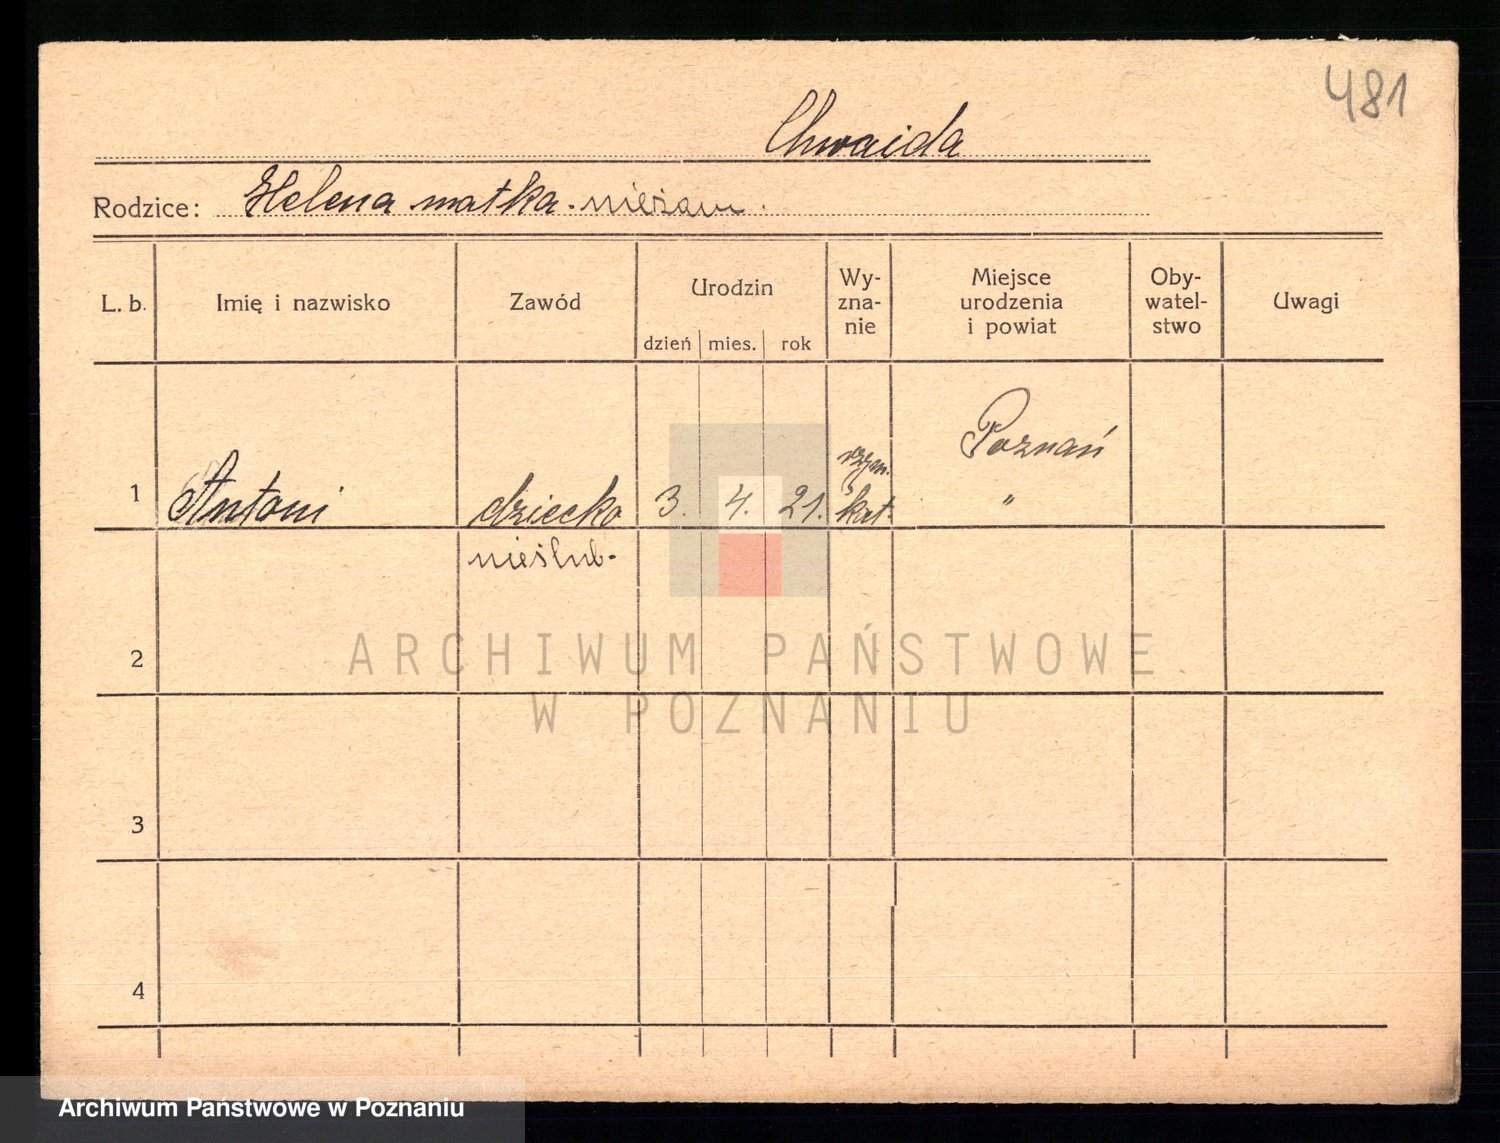 481
Chwaida
Rodzice: Helena matka. niezam.
L. b. Imię i nazwisko Zawód Urodzin dzień mies. rok Wy-
zna-
nie Miejsce
urodzenia
i powiat Oby-
watel-
stwo Uwagi
1 Antoni dziecko 3. 4. 21. rzym.
kat. Poznań
"
nieślub.
2
3
4
ARCHIWUM PAŃSTWOWE
W POZNANIU
Archiwum Państwowe w Poznaniu